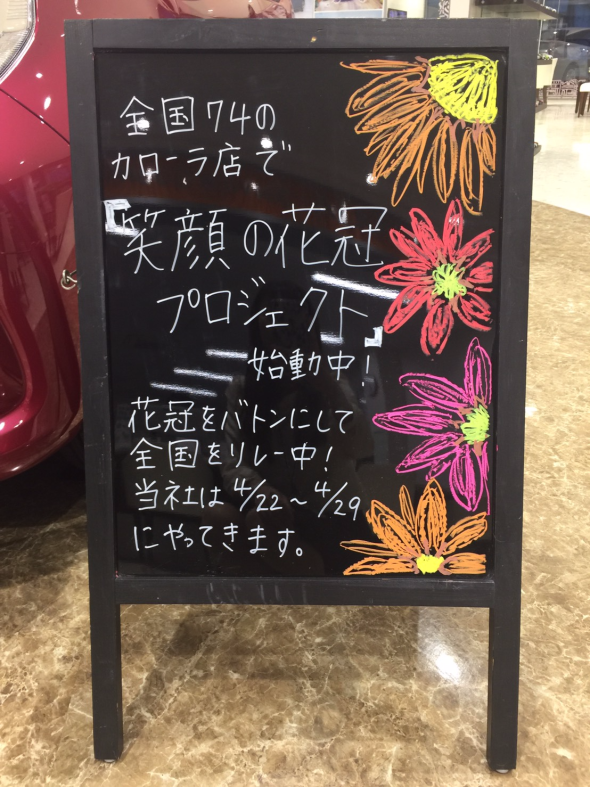 全国74の
カローラ店で
『笑顔の花冠
プロジェクト』
始動中!
花冠をバトンにして
全国をリレー中!
当社は4/22~4/29
にやってきます。